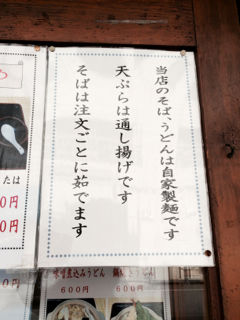 当店のそば、うどんは自家製麺です
天ぷらは通し揚げです
そばは注文ごとに茹でます
たは
0円
0円
味噌煮込みうどん
600円
600円